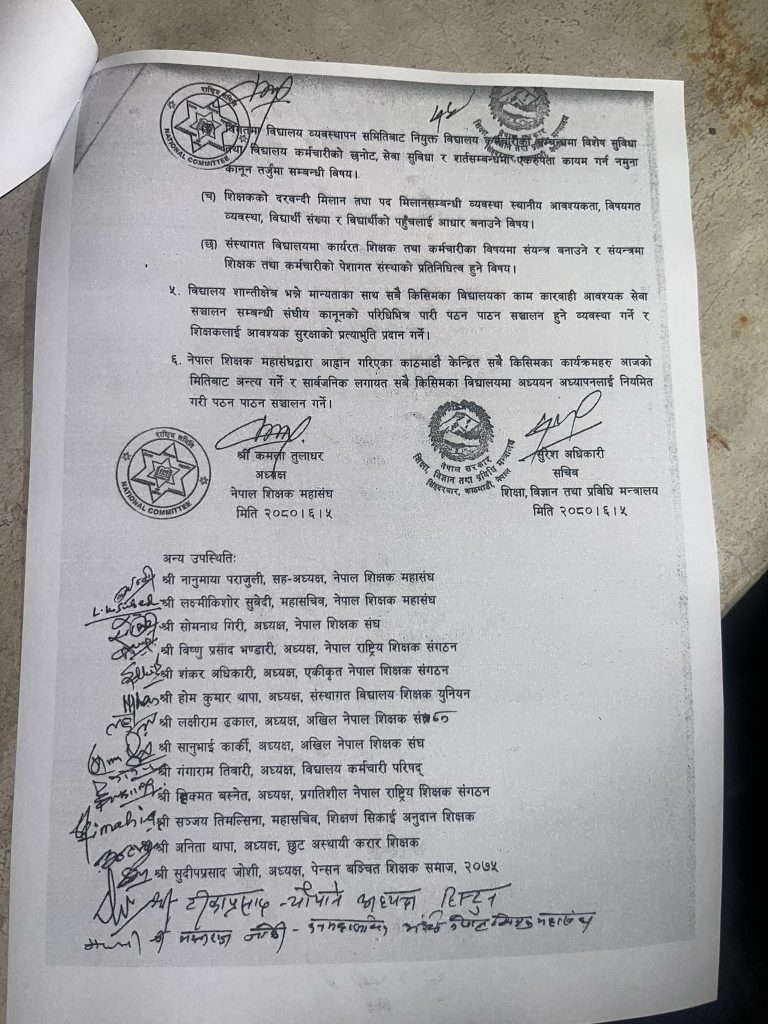 राष्ट्रिय समिति
NATIONAL COMMITTEE
विगतमा विद्यालय व्यवस्थापन समितिबाट नियुक्त विद्यालय कर्मचारीको सम्बन्धमा विशेष सुविधा
तथा विद्यालय कर्मचारीको छनोट, सेवा सुविधा र शर्तसम्बन्धमा एकरुपता कायम गर्न नमुना
कानून तर्जुमा सम्बन्धी विषय।
(च) शिक्षकको दरवन्दी मिलान तथा पद मिलानसम्बन्धी व्यवस्था स्थानीय आवश्यकता, विषयगत
व्यवस्था, विद्यार्थी संख्या र विद्यार्थीको पहुँचलाई आधार बनाउने विषय।
(छ) संस्थागत विद्यालयमा कार्यरत शिक्षक तथा कर्मचारीका विषयमा संयन्त्र बनाउने र संयन्त्रमा
शिक्षक तथा कर्मचारीको पेशागत संस्थाको प्रतिनिधित्व हुने विषय।
५. विद्यालय शान्तीक्षेत्र भन्ने मान्यताका साथ सबै किसिमका विद्यालयका काम कारवाही आवश्यक सेवा
सञ्चालन सम्बन्धी संघीय कानूनको परिधिभित्र पारी पठन पाठन सञ्चालन हुने व्यवस्था गर्ने र
शिक्षकलाई आवश्यक सुरक्षाको प्रत्याभुति प्रदान गर्ने।
६. नेपाल शिक्षक महासंघद्वारा आह्वान गरिएका काठमाडौं केन्द्रित सबै किसिमका कार्यक्रमहरु आजको
मितिबाट अन्त्य गर्ने र सार्वजनिक लगायत सबै किसिमका विद्यालयमा अध्ययन अध्यापनलाई नियमित
गरी पठन पाठन सञ्चालन गर्ने।
राष्ट्रिय समिति
NATIONAL COMMITTEE
श्री कमला तुलाधर
अध्यक्ष
नेपाल शिक्षक महासंघ
मिति २०८०।६।५
नेपाल सरकार
शिक्षा, विज्ञान तथा प्रविधि मन्त्रालय
सिंहदरबार, काठमाडौं, नेपाल
सुरेश अधिकारी
सचिव
शिक्षा, विज्ञान तथा प्रविधि मन्त्रालय
मिति २०८०।६।५
अन्य उपस्थितिः
श्री नानुमाया पराजुली, सह-अध्यक्ष, नेपाल शिक्षक महासंघ
श्री लक्ष्मीकिशोर सुवेदी, महासचिव, नेपाल शिक्षक महासंघ
श्री सोमनाथ गिरी, अध्यक्ष, नेपाल शिक्षक संघ
श्री विष्णु प्रसाद भण्डारी, अध्यक्ष, नेपाल राष्ट्रिय शिक्षक संगठन
श्री शंकर अधिकारी, अध्यक्ष, एकीकृत नेपाल शिक्षक संगठन
श्री होम कुमार थापा, अध्यक्ष, संस्थागत विद्यालय शिक्षक युनियन
श्री लक्षीराम ढकाल, अध्यक्ष, अखिल नेपाल शिक्षक
श्री सानुभाई कार्की, अध्यक्ष, अखिल नेपाल शिक्षक संघ
श्री गंगाराम तिवारी, अध्यक्ष, विद्यालय कर्मचारी परिषद्
श्री हिक्मत बस्नेत, अध्यक्ष, प्रगतिशील नेपाल राष्ट्रिय शिक्षक संगठन
श्री सञ्जय तिमल्सिना, महासचिव, शिक्षण सिकाई अनुदान शिक्षक
श्री अनिता थापा, अध्यक्ष, छुट अस्थायी करार शिक्षक
श्री सुदीपप्रसाद जोशी, अध्यक्ष, पेन्सन बञ्चित शिक्षक समाज, २०७५
श्री टीकाप्रसाद